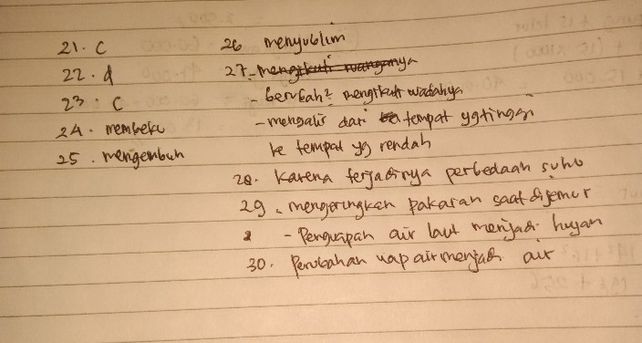 21. c
22. d
23. c
24. membeku
25. mengembun
26 menyublim
27. - mengikuti ruangannya
- berubah² mengikuti wadahnya
- mengalir dari tempat yg tinggi
ke tempat yg rendah
28. Karena terjadinya perbedaan suhu
29. mengeringkan pakaian saat dijemur
- Penguapan air laut menjadi hujan
30. Perubahan uap air menjadi air